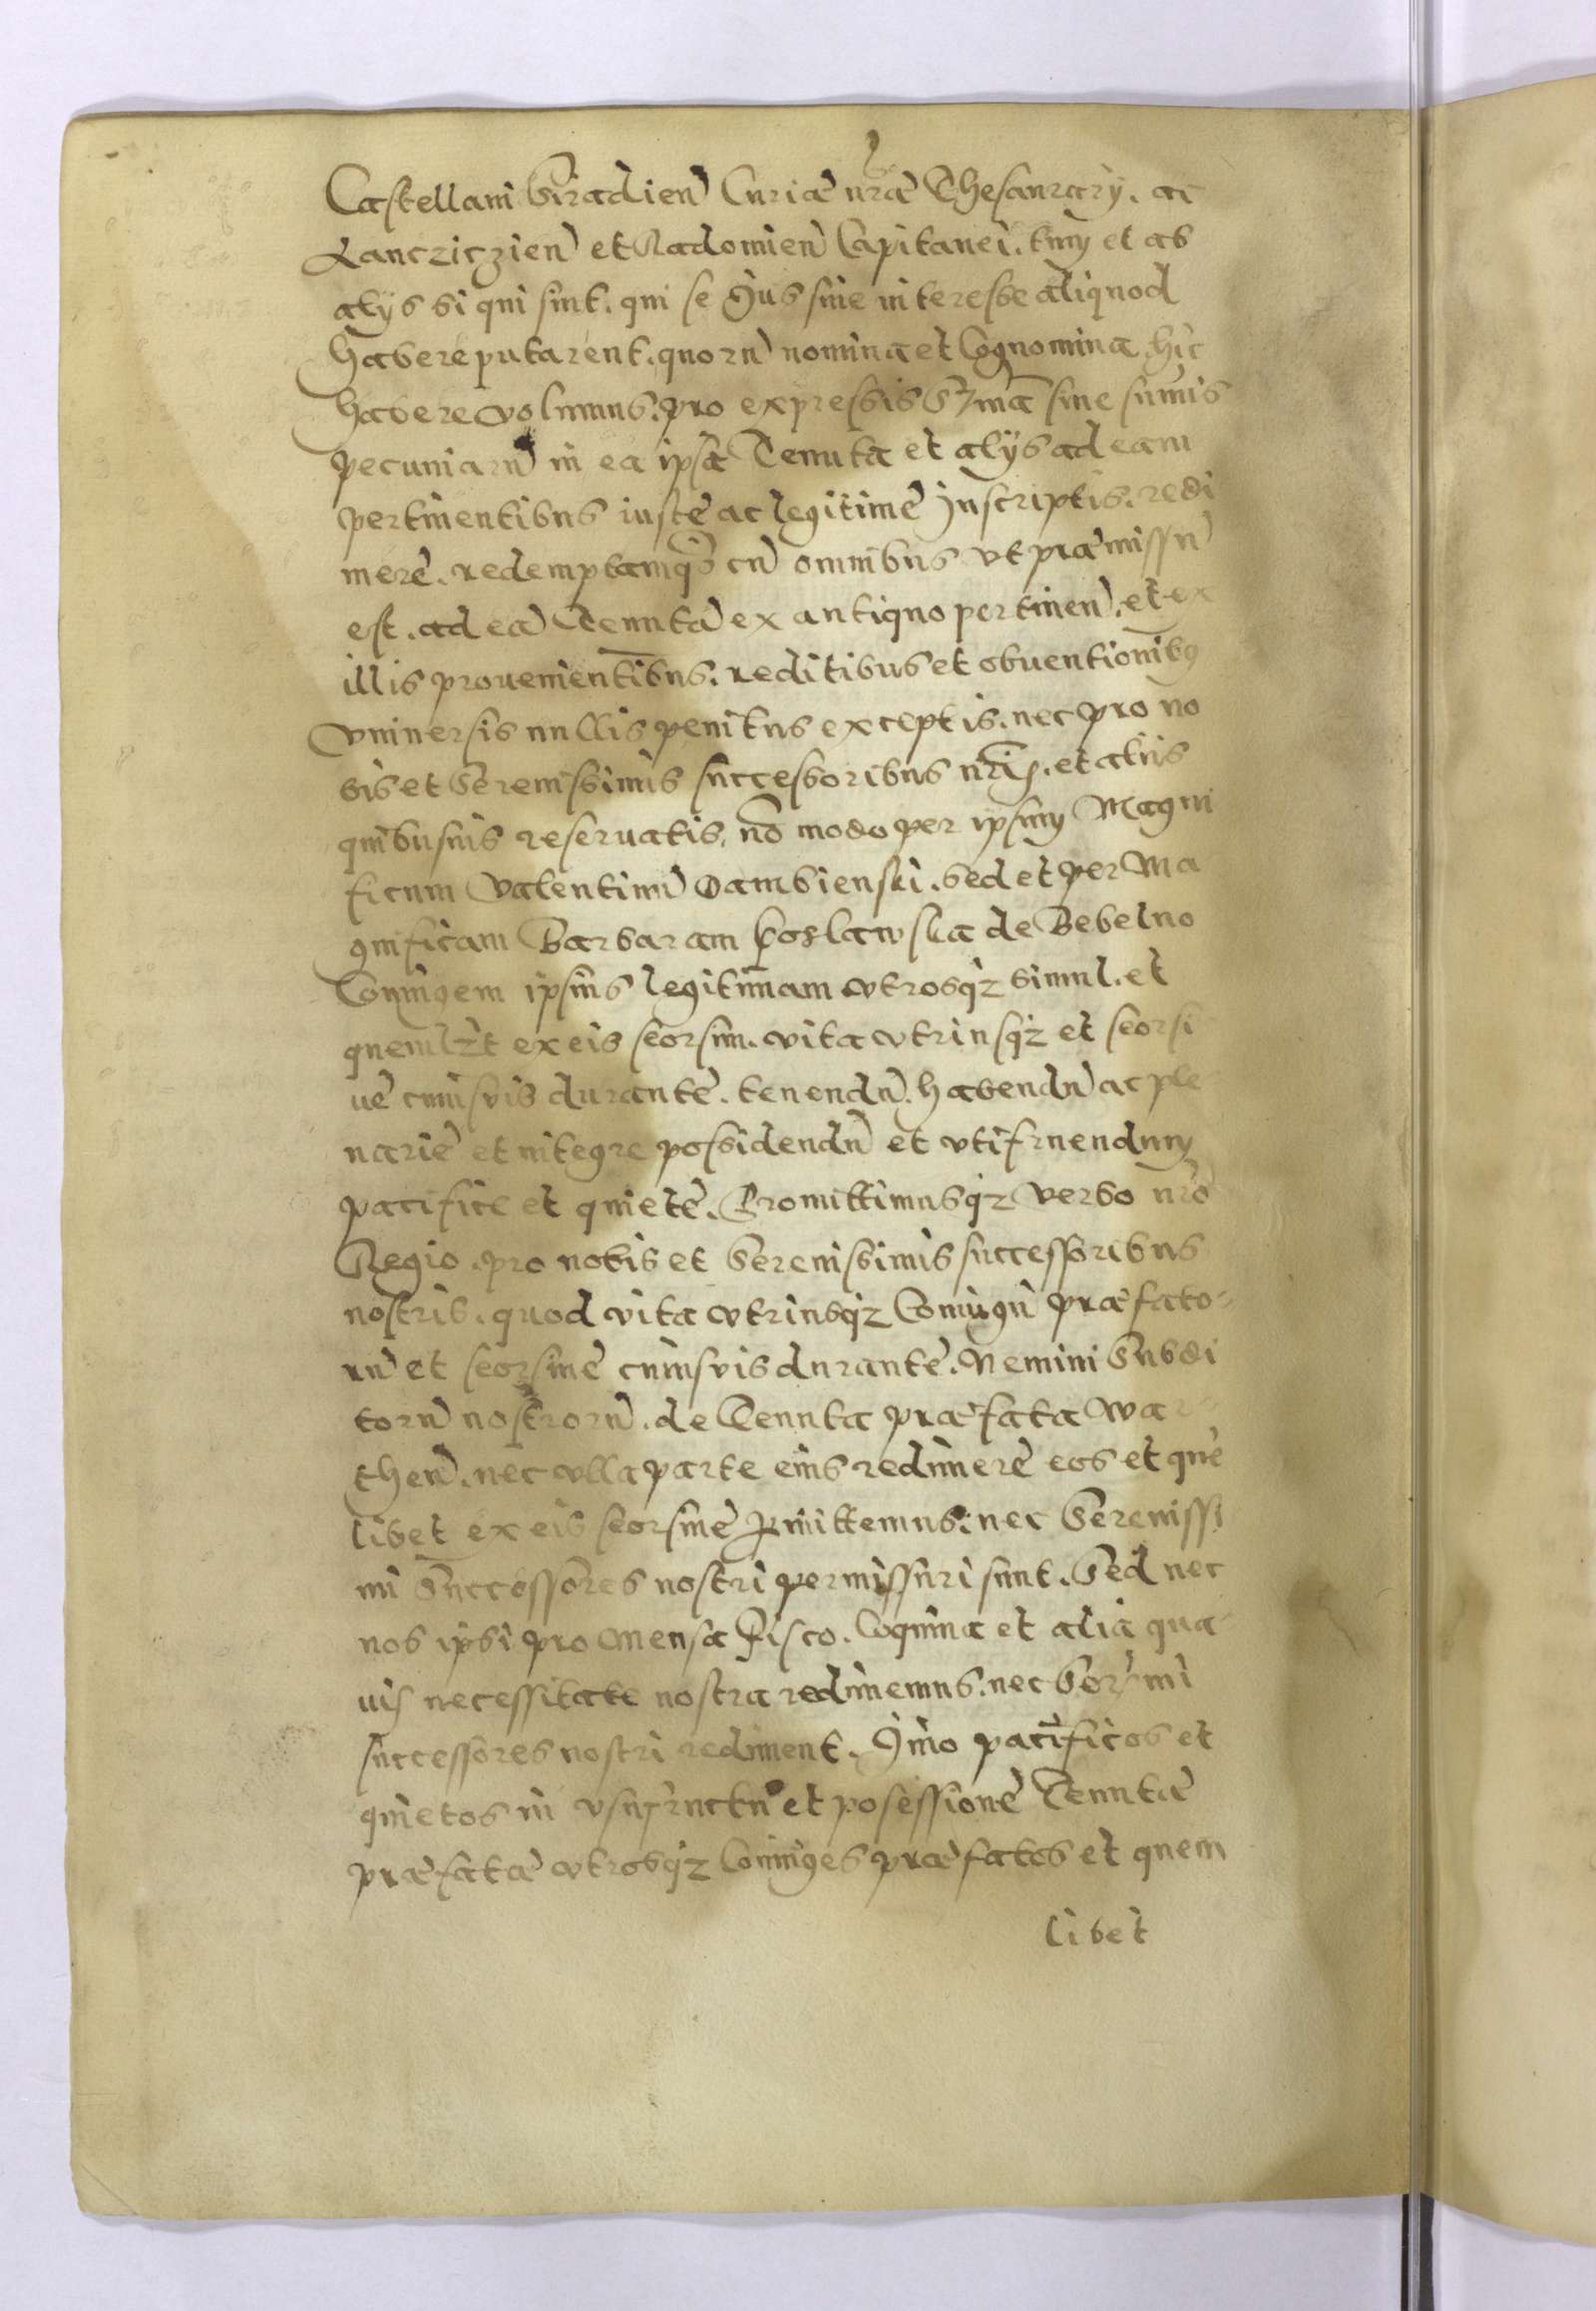 Castellani Siradien̄ Curiæ nr̄æ Thesaurarÿ. ac
Lancziczien̄ et Radomien̄ Capitanei. tum et ab
alÿs si qui sint. qui se Jus siue interesse aliquod
habere putarent. quorū nomina et Cognomina hic
habere volumus. pro expressis Sum̄a siue sum̄is
pecuniarū in ea ipsa Tenuta et alÿs ad eam
pertinentibus iuste ac legitime Inscriptis. redi
mere. redemptamq̨ cū omnibus vt præmissū
est. ad eā Tenutā ex antiquo pertinen̄. et ex
illis prouenientibus. reditibus et obuentionibꝰ
vniuersis nullis penitus exceptis. nec pro no
bis et Serenissimis successoribus nr̄is. et aliis
quibusuis reseruatis. nō modo per ipsum Magni
ficum Valentinū Dambienski. sed et per Ma
gnificam Barbaram Koslawska de Bebelno
Coniugem ipsius legitimam vtrosqz simul. et
quemlzt ex eis seorsim. vita vtriusqz et seorsi
ue cuiusvis durante. tenendū. habendū ac ple
narie et integre possidendū et vtifruendum
pacifice et quiete. Promittimusqz verbo nr̄o
Regio. pro nobis et Serenissimis successoribus
nostris. quod vita vtriusqz Coniugū præfato-
rū et seorsiue cuiusvis durante. Nemini Subdi
torū nostrorū. de Tenuta præfata War
then̄. nec vlla parte eius redimere eos et quē
libet ex eis seorsiue p̱mittemus. nec Serenissi
mi Successores nostri permissuri sunt. Sed nec
nos ipsi pro Mensa Fisco. Coquina et alia qua
uis necessitate nostra redimemus. nec Serm̄i
successores nostri rediment. Imo pacificos et
quietos in vsufructu et posessione Tenutæ
præfatæ vtrosqz Coniuges præfatos et quem
libet